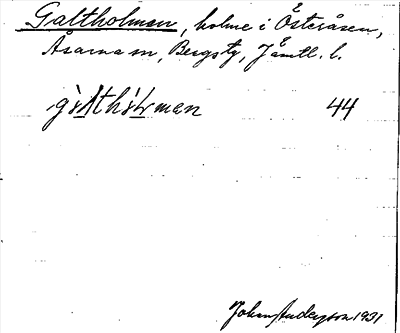 Galtholman, holme i Österåsen,
Åsarna sn, Bergs tg, Jämtl. l.
44
Johan Anderson 1931